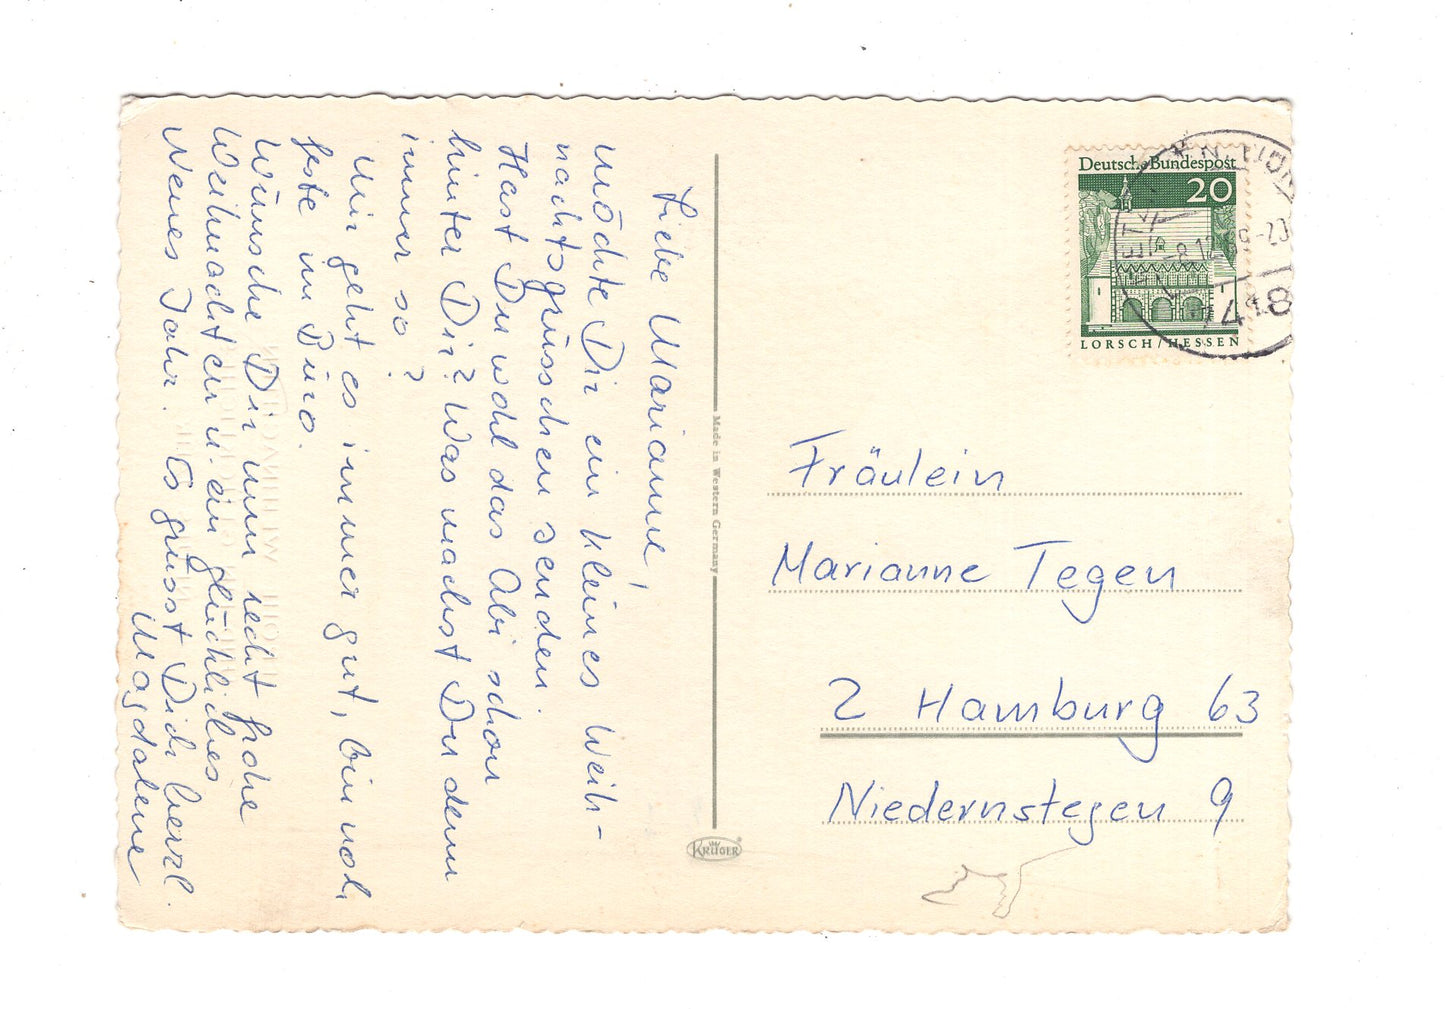 Liebe Marianne,
möchte Dir ein kleines Weih-
nachtsgrüsschen senden.
Hast Du wohl das Abi schon
hinter Dir? Was machst Du denn
immer so?
Mir geht es immer gut, bin noch
feste im Büro.
Wünsche Dir nun recht frohe
Weihnachten u. ein glückliches
Neues Jahr. Es grüsst Dich herzl.
Magdalene
Made in Western Germany
KRÜGER
Deutsche Bundespost
20
LORSCH/HESSEN
-8.12.69-20
Fräulein
Marianne Tegen
2 Hamburg 63
Niedernstegen 9